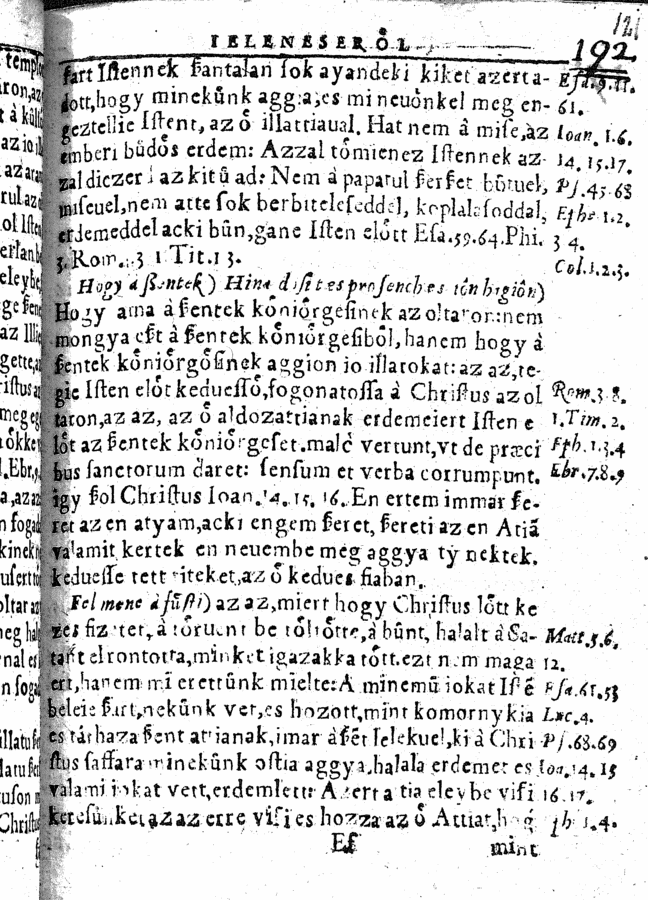 IELENESEROL
121
192
ßart Istennek ßantalan sok ayandeki kiket azerta-
dott, hogy minekűnk aggia, es mi neuönkel meg en-
geztellie Istent, az ő illattiaual. Hat nem à mise, àz
emberi bűdös erdem: Azzal tömienez Istennek az-
zal diczeri az kitű ad: Nem à paparul ßerßet bűtuek,
miseuel, nem atte sok berbiteleseddel, koplalasoddal,
erdemeddel acki bűn, gane Isten elött Esa. 59. 64. Phi.
3. Rom. 3 1 Tit. 1 3.
Hogy à ßentek)
Hogy ama à ßentek köniörgesinek az oltaron: nem
mongya ezt à ßentek köniörgesiböl, hanem hogy à
ßentek köniörgösinek aggion io illatokat: az az, te-
gie Isten elöt keduessö, fogonatossa à Christus az ol
taron, az az, az ő aldozattianak erdemeiert Isten e
löt az ßentek köniörgeset. malè vertunt, vt de præci
bus sanctorum daret: sensum et verba corrumpunt.
igy ßol Christus Ioan. 14. 15. 16. En ertem immar ße-
ret az en atyam, acki engem ßeret, ßereti az en Atiã
valamit kertek en neuembe meg aggya ty nektek.
keduesse tett titeket, az ő kedues fiaban.
Fel mene à füsti) az az, miert hogy Christus lött ke
zes fizetet, à töruent be töltötte, à bűnt, halalt à Sa-
tant el rontotta, minket igazakka tött. ezt nem maga
ert, hanem mi erettűnk mielte: A minemű iokat Isẽ
beleie ßart, nekűnk vet, es hozott, mint komornykia
es tárhaza ßent atianak, imar à ßẽt lelekuel, ki à Chri
stus saffara minekűnk ostia aggya, halala erdemet es
valami iokat vett, erdemlett: Azert a tia eleybe visi
keresűnket, az az erre visi es hozza az ő Attiat, hog
Ef mint
Esa. 9. 11.
61.
Ioan. 1. 6.
14. 15. 17.
Ps. 45. 68
Ephe 1. 2.
3 4.
Col. 1. 2. 3.
Rom. 3. 8.
1. Tim. 2.
Eph. 1. 3. 4
Ebr. 7. 8. 9
Matt. 5. 6.
12.
Esa. 61. 53
Luc. 4.
Ps. 68. 69
Ioa. 14. 15
16. 17.
ph. 1. 4.